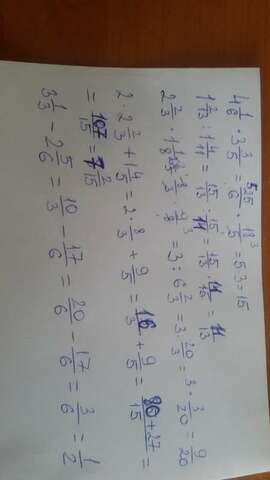 4 1/6 · 3 3/5 = 25/6 · 18/5 = 5·3 = 15
1 2/13 : 1 4/11 = 15/13 : 15/11 = 15/13 · 11/15 = 11/13
2 2/3 · 1 1/8 = 8/3 · 9/8 = 3 : 6 2/3 = 3 · 20/3 = 3 · 3/20 = 9/20
2 · 2 2/3 + 1 4/5 = 2 · 8/3 + 9/5 = 16/3 + 9/5 = 80+27/15 =
= 107/15 = 7 2/15
3 1/3 - 2 5/6 = 10/3 - 17/6 = 20/6 - 17/6 = 3/6 = 1/2